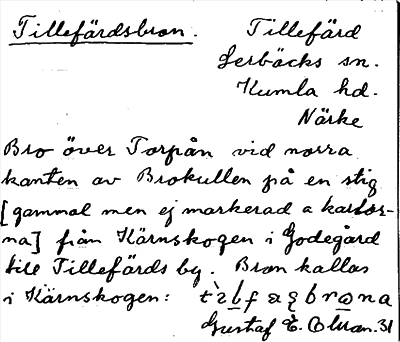 Tillefärdsbron. Tillefärd
Lerbäcks sn.
Kumla hd.
Närke
Bro över Torpån vid norra
kanten av Brokullen på en stig
[gammal men ej markerad å kartor-
na] från Kärnskogen i Godegård
till Tillefärds by. Bron kallas
i Kärnskogen:
Gustaf E. 31